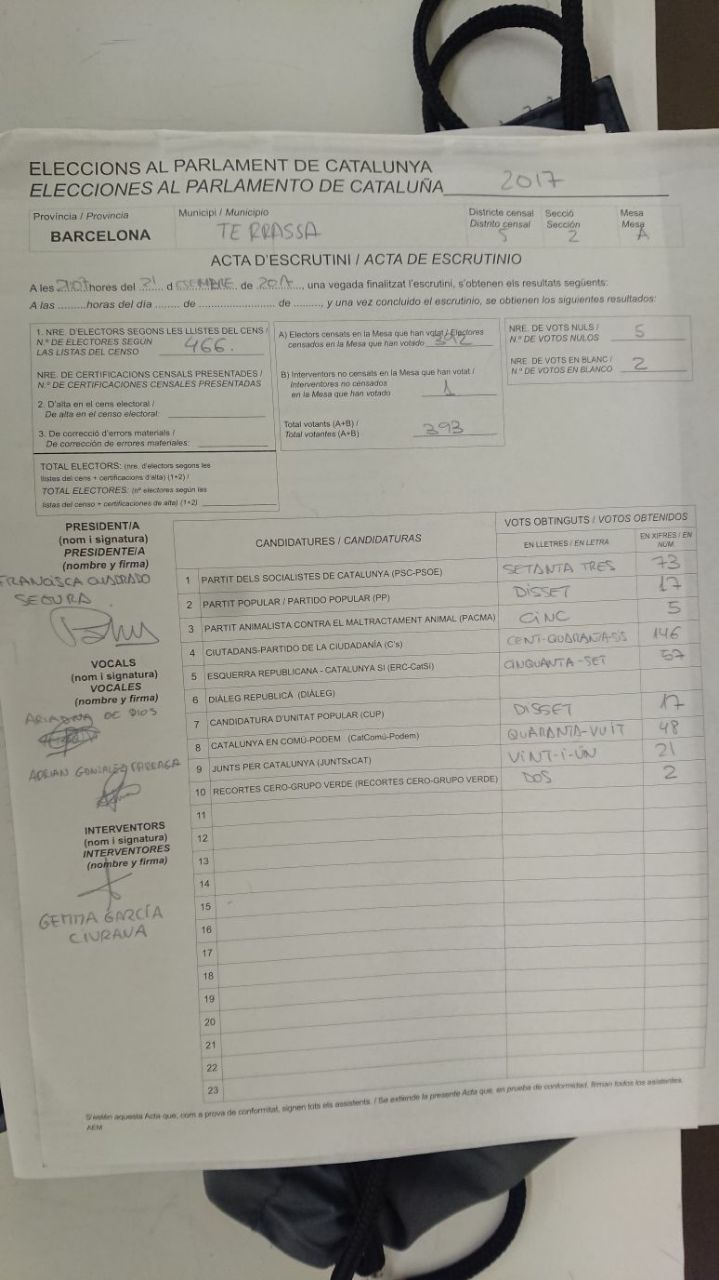 ELECCIONS AL PARLAMENT DE CATALUNYA
ELECCIONES AL PARLAMENTO DE CATALUÑA 2017
Província / Provincia
BARCELONA
Municipi / Municipio
TERRASSA
Districte censal
Distrito censal
5
Secció
Sección
2
Mesa
Mesa
A
ACTA D'ESCRUTINI / ACTA DE ESCRUTINIO
A les hores del 21 d de 2017, una vegada finalitzat l'escrutini, s'obtenen els resultats següents:
A las .........horas del día ....... de ........................ de ........, y una vez concluido el escrutinio, se obtienen los siguientes resultados:
1. NRE. D'ELECTORS SEGONS LES LLISTES DEL CENS /
N.º DE ELECTORES SEGÚN
LAS LISTAS DEL CENSO 466.
NRE. DE CERTIFICACIONS CENSALS PRESENTADES /
N.º DE CERTIFICACIONES CENSALES PRESENTADAS
2. D'alta en el cens electoral /
De alta en el censo electoral:
3. De correcció d'errors materials /
De corrección de errores materiales:
TOTAL ELECTORS: (nre. d'electors segons les
llistes del cens + certificacions d'alta) (1+2) /
TOTAL ELECTORES: (nº electores según las
listas del censo + certificaciones de alta) (1+2)
A) Electors censats en la Mesa que han votat / Electores
censados en la Mesa que han votado 392
B) Interventors no censats en la Mesa que han votat /
Interventores no censados
en la Mesa que han votado 1
Total votants (A+B) /
Total votantes (A+B) 393
NRE. DE VOTS NULS /
N.º DE VOTOS NULOS 5
NRE. DE VOTS EN BLANC /
N.º DE VOTOS EN BLANCO 2
PRESIDENT/A
(nom i signatura)
PRESIDENTE/A
(nombre y firma)
FRANCISCA CUADRADO
SEGURA
VOCALS
(nom i signatura)
VOCALES
(nombre y firma)
ARIADNA DE DIOS
ADRIAN GONZALEZ
INTERVENTORS
(nom i signatura)
INTERVENTORES
(nombre y firma)
GEMMA GARCÍA
CIURANA
CANDIDATURES / CANDIDATURAS
VOTS OBTINGUTS / VOTOS OBTENIDOS
EN LLETRES / EN LETRA
EN XIFRES / EN NÚM.
1 PARTIT DELS SOCIALISTES DE CATALUNYA (PSC-PSOE) SETANTA TRES 73
2 PARTIT POPULAR / PARTIDO POPULAR (PP) DISSET 17
3 PARTIT ANIMALISTA CONTRA EL MALTRACTAMENT ANIMAL (PACMA) CINC 5
4 CIUTADANS-PARTIDO DE LA CIUDADANÍA (C's) CENT-QUARANTA-SIS 146
5 ESQUERRA REPUBLICANA - CATALUNYA SI (ERC-CatSí) CINQUANTA-SET 57
6 DIÀLEG REPUBLICÀ (DIÀLEG)
7 CANDIDATURA D'UNITAT POPULAR (CUP) DISSET 17
8 CATALUNYA EN COMÚ-PODEM (CatComú-Podem) QUARANTA-VUIT 48
9 JUNTS PER CATALUNYA (JUNTSxCAT) VINT-I-UN 21
10 RECORTES CERO-GRUPO VERDE (RECORTES CERO-GRUPO VERDE) DOS 2
11
12
13
14
15
16
17
18
19
20
21
22
23
S'estén aquesta Acta que, com a prova de conformitat, signen tots els assistents. / Se extiende la presente Acta que, en prueba de conformidad, firman todos los asistentes.
AEM